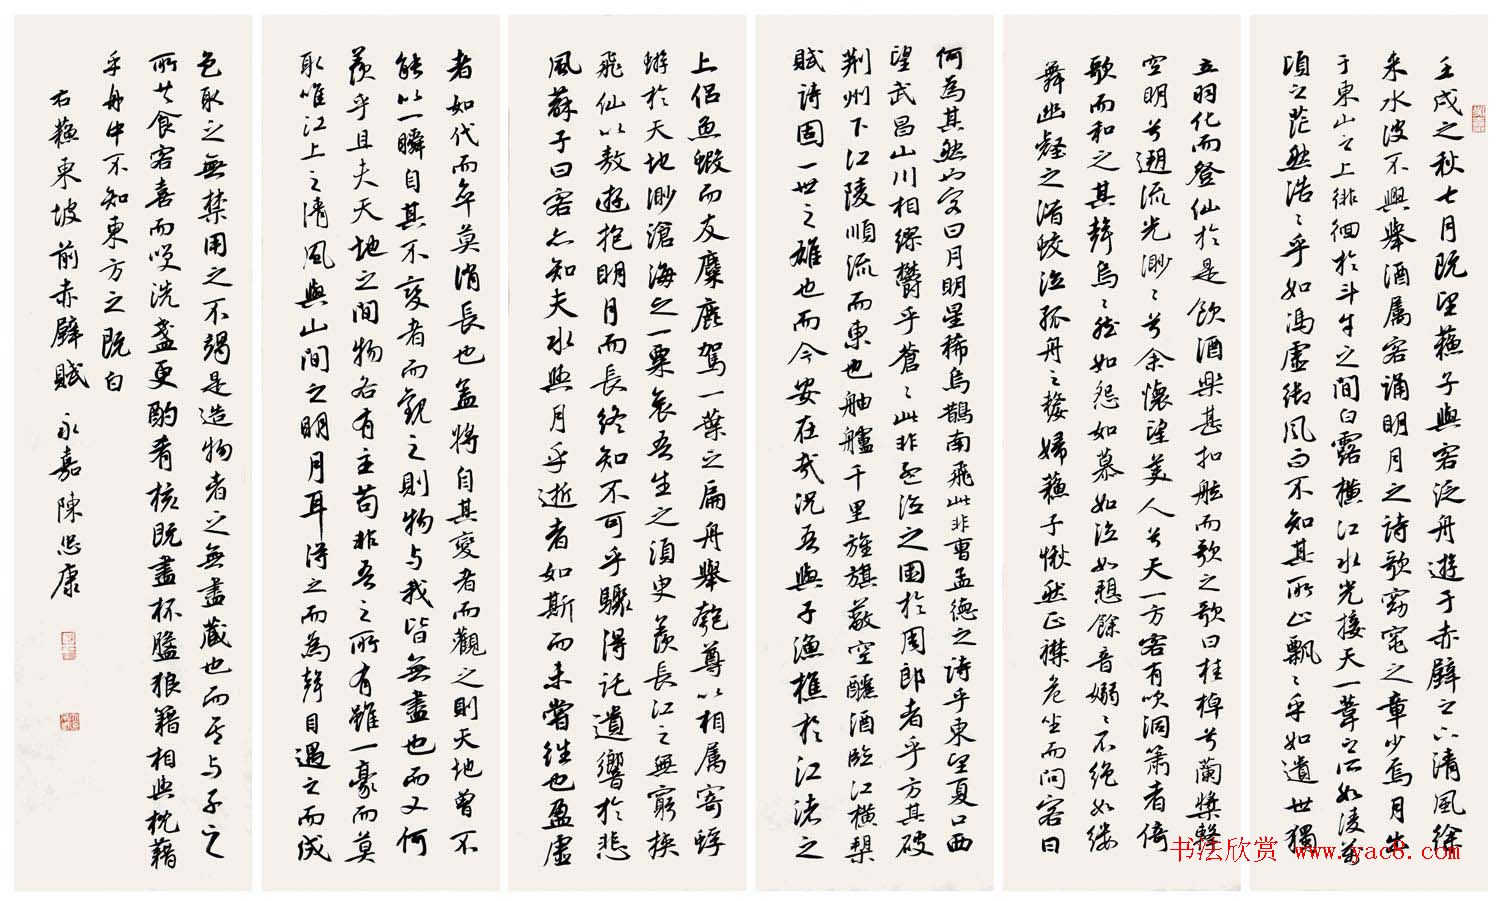 壬戌之秋七月既望蘇子與客泛舟遊于赤壁之下清風徐
来水波不興舉酒属客誦明月之詩歌窈窕之章少焉月出
于東山之上徘徊於斗牛之間白露橫江水光接天一葦之所如凌萬
頃之茫然浩々乎如馮虛御風而不知其所止飄々乎如遺世獨
立羽化而登仙於是飲酒樂甚扣舷而歌之歌曰桂棹兮蘭槳擊
空明兮遡流光渺々兮余懷望美人兮天一方客有吹洞簫者倚
歌而和之其聲烏々然如怨如慕如泣如愬餘音嫋々不絕如縷
舞幽壑之潛蛟泣孤舟之嫠婦蘇子愀然正襟危坐而問客曰
何為其然也客曰月明星稀烏鵲南飛此非曹孟德之詩乎東望夏口西
望武昌山川相繆欝乎蒼々此非孟德之困於周郎者乎方其破
荆州下江陵順流而東也舳艫千里旌旗蔽空釃酒臨江橫槊
賦詩固一世之雄也而今安在哉況吾與子漁樵於江渚之
上侶魚蝦而友麋鹿駕一葉之扁舟舉匏尊以相属寄蜉
蝣於天地渺滄海之一粟哀吾生之須臾羨長江之無窮挾
飛仙以敖遊抱明月而長終知不可乎驟得託遺響於悲
風蘇子曰客亦知夫水與月乎逝者如斯而未嘗往也盈虛
者如代而卒莫消長也蓋將自其變者而觀之則天地曾不
能以一瞬自其不變者而觀之則物与我皆無盡也而又何
羨乎且夫天地之間物各有主苟非吾之所有雖一豪而莫
取唯江上之清風與山間之明月耳得之而為聲目遇之而成
色取之無禁用之不竭是造物者之無盡藏也而吾与子之
所共食客喜而笑洗盞更酌肴核既盡杯盤狼籍相與枕藉
乎舟中不知東方之既白
右蘇東坡前赤壁賦 永嘉陳忠康
书法欣赏 www.yac8.com